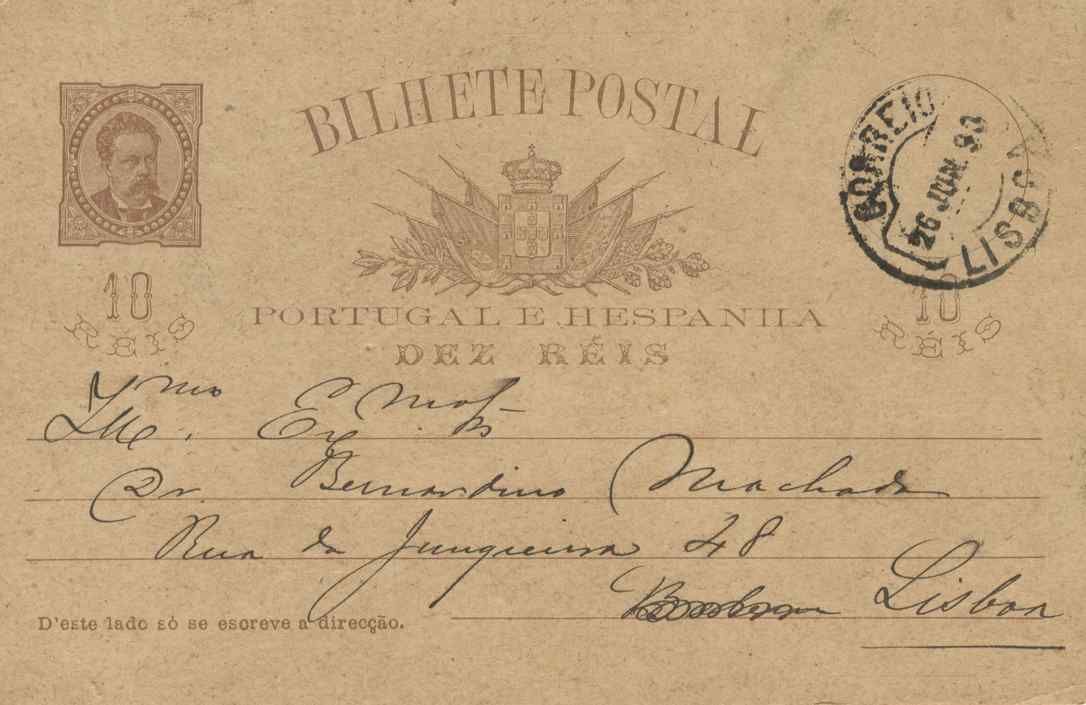 BILHETE POSTAL
CORREIO
26 JUN. 93
LISBOA
10
RÉIS
10
RÉIS
PORTUGAL E HESPANHA
DEZ RÉIS
Illmo. Ex
Dr. Bernardino Machado
Rua da Junqueira 48
Lisboa
D'este lado só se escreve a direcção.